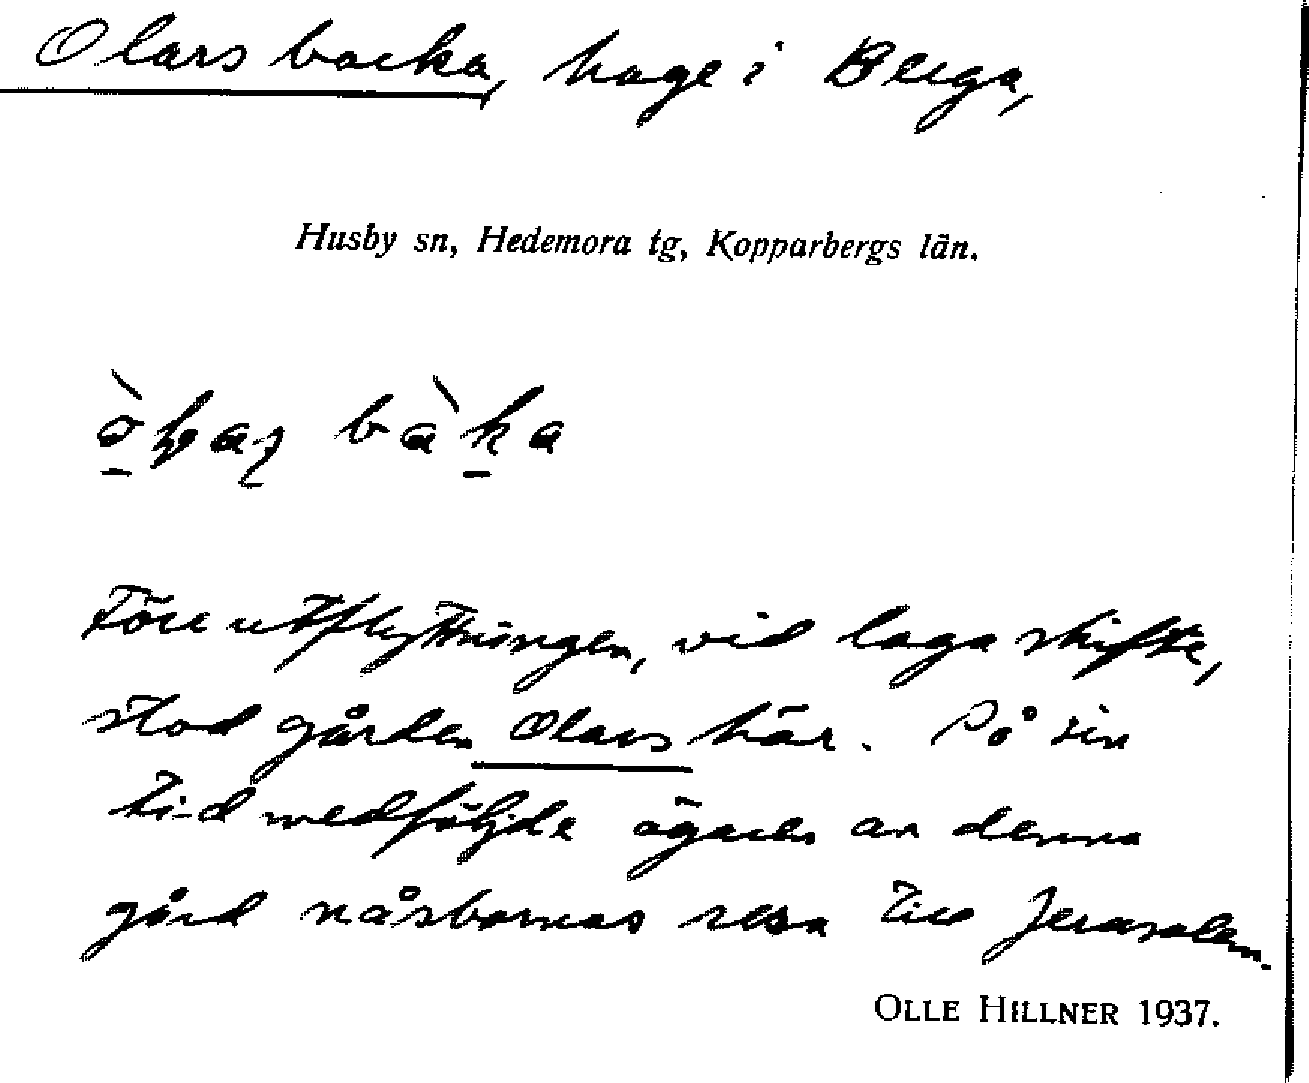 Olars backa, hage i Berga,
Husby sn, Hedemora tg, Kopparbergs län.
bàka
Före utflyttningen, vid laga skifte,
stod gården Olars här. På sin
tid medföljde ägaren av denna
gård nåsbornas resa till Jerusalem.
OLLE HILLNER 1937.